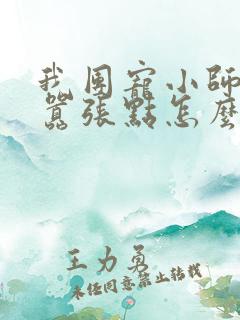 我團寵小師
囂張點怎麼
王力勇
未经同意禁止转载